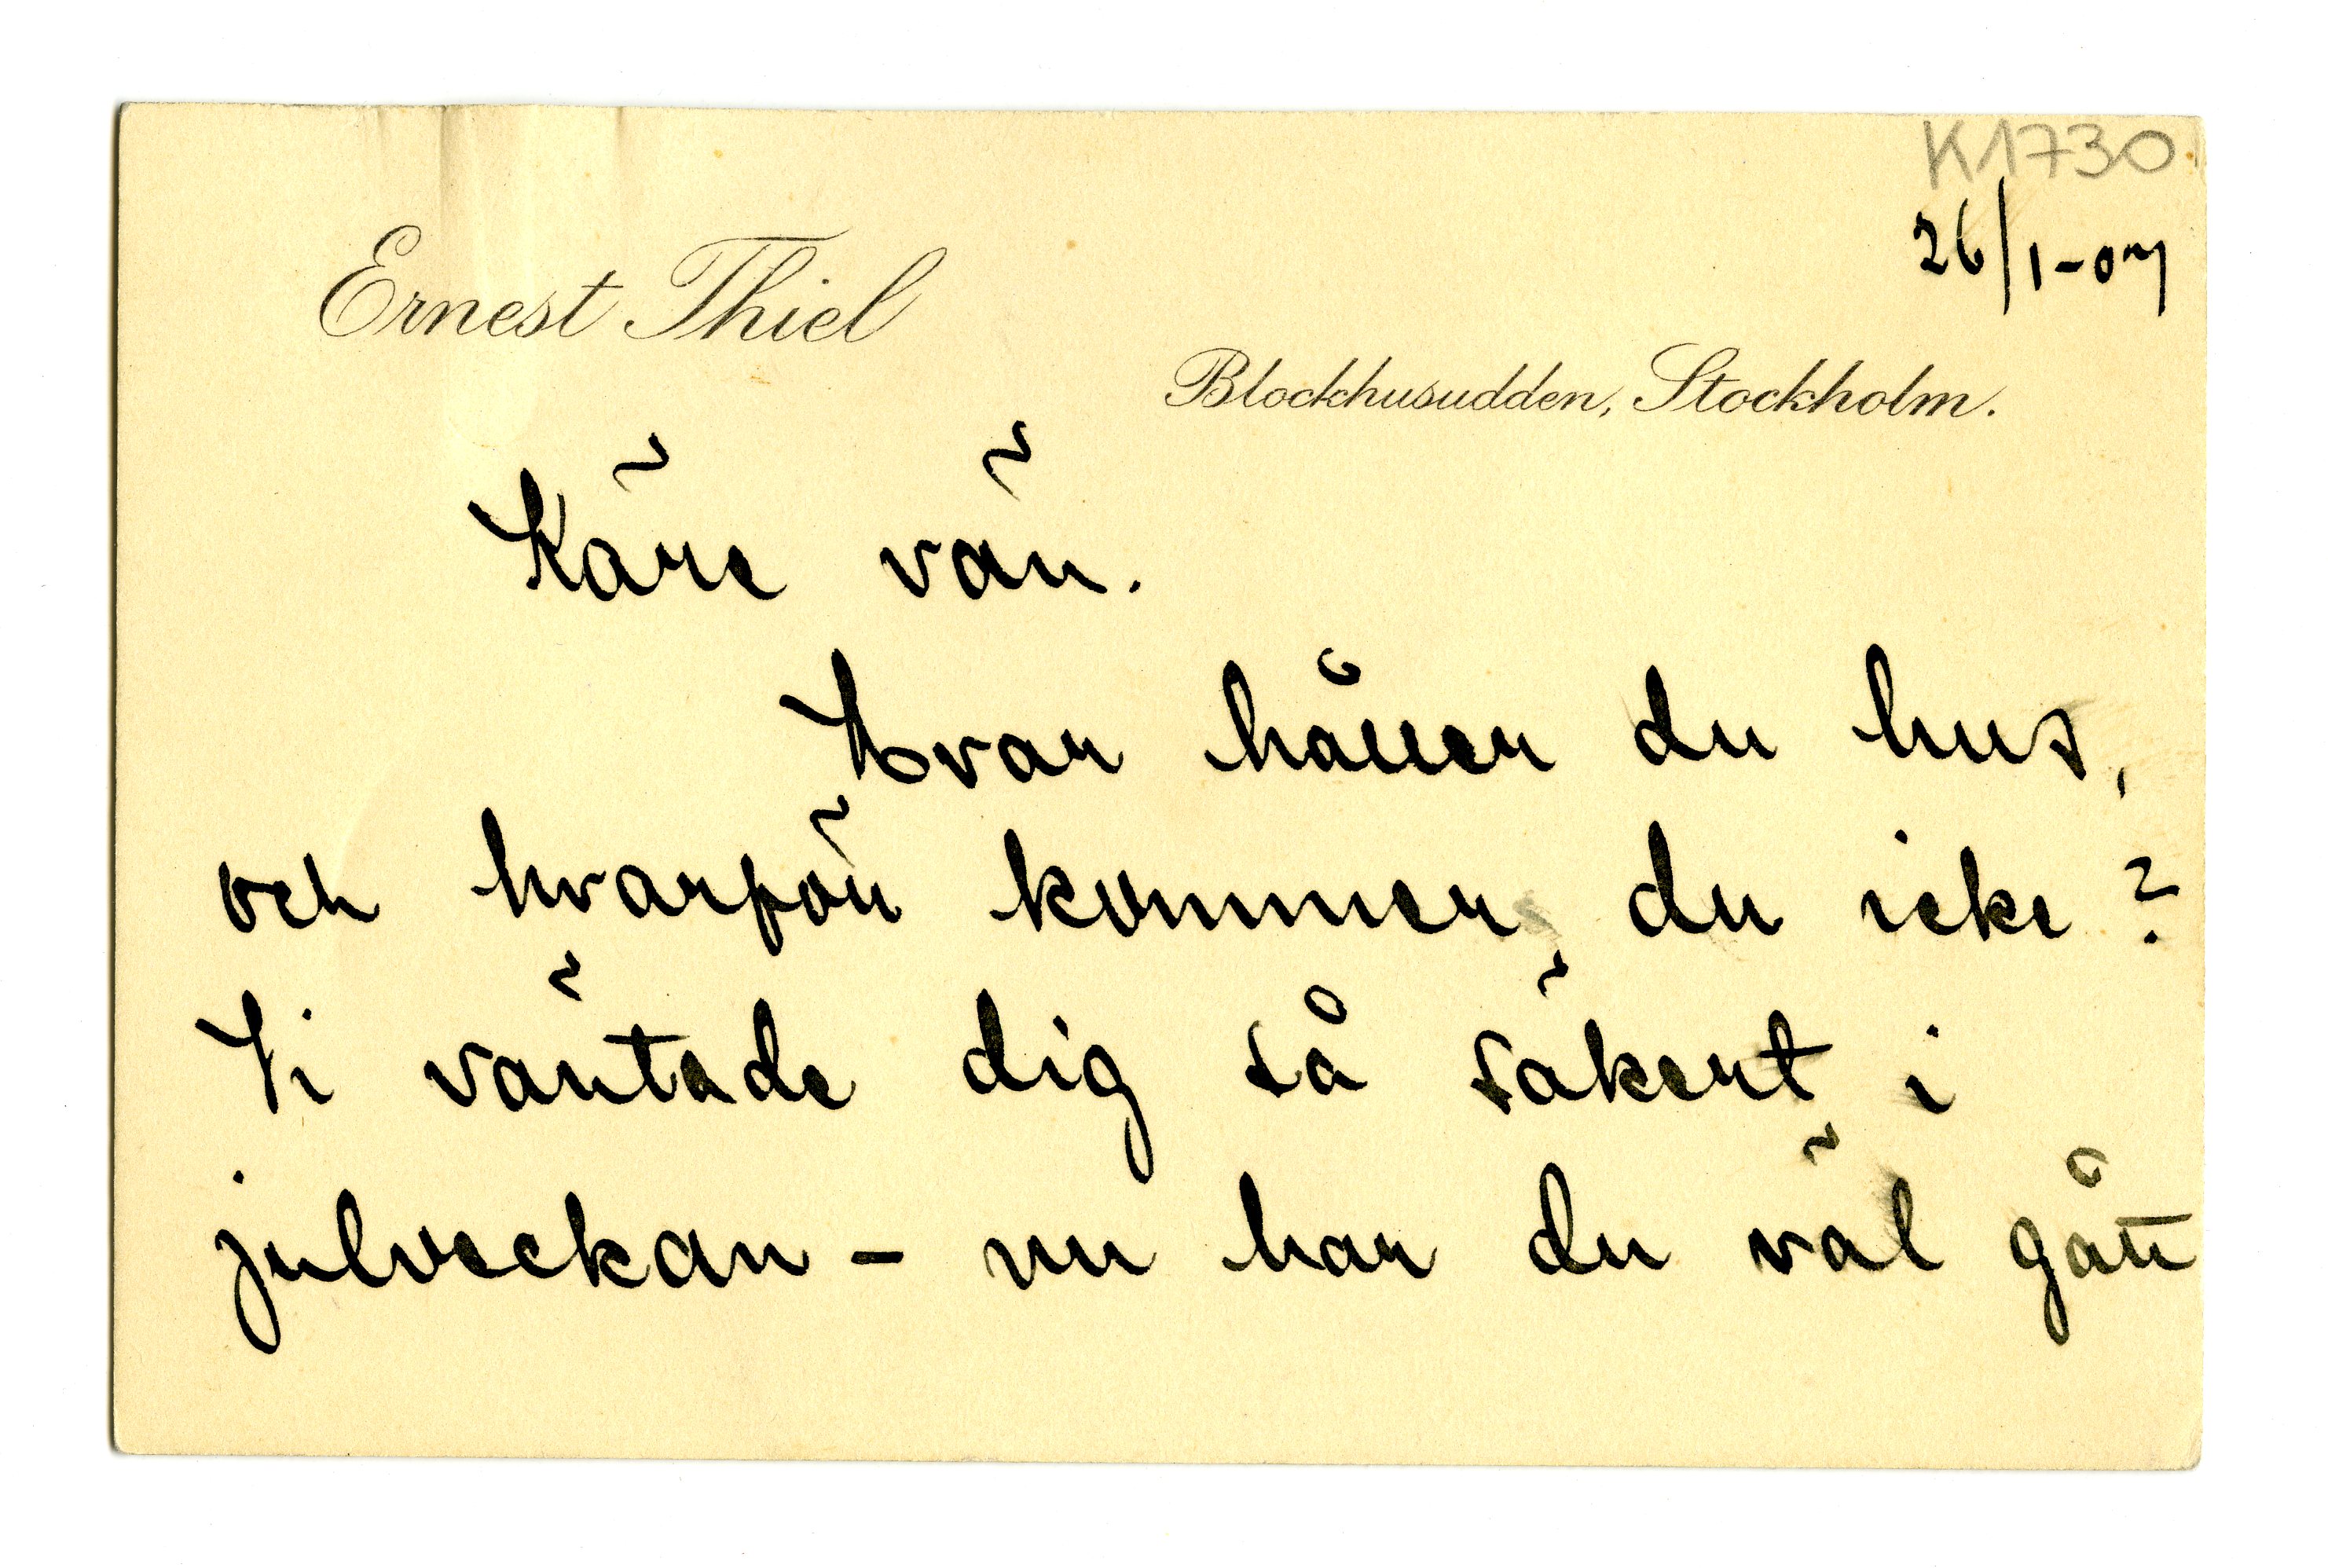 K1730
26/1-07
Ernest Thiel
Blockhusudden, Stockholm.
Käre vän.
Hvar håller du hus,
och hvarför kommer du icke?
Vi väntade dig så säkert i
julveckan - nu har du väl gått